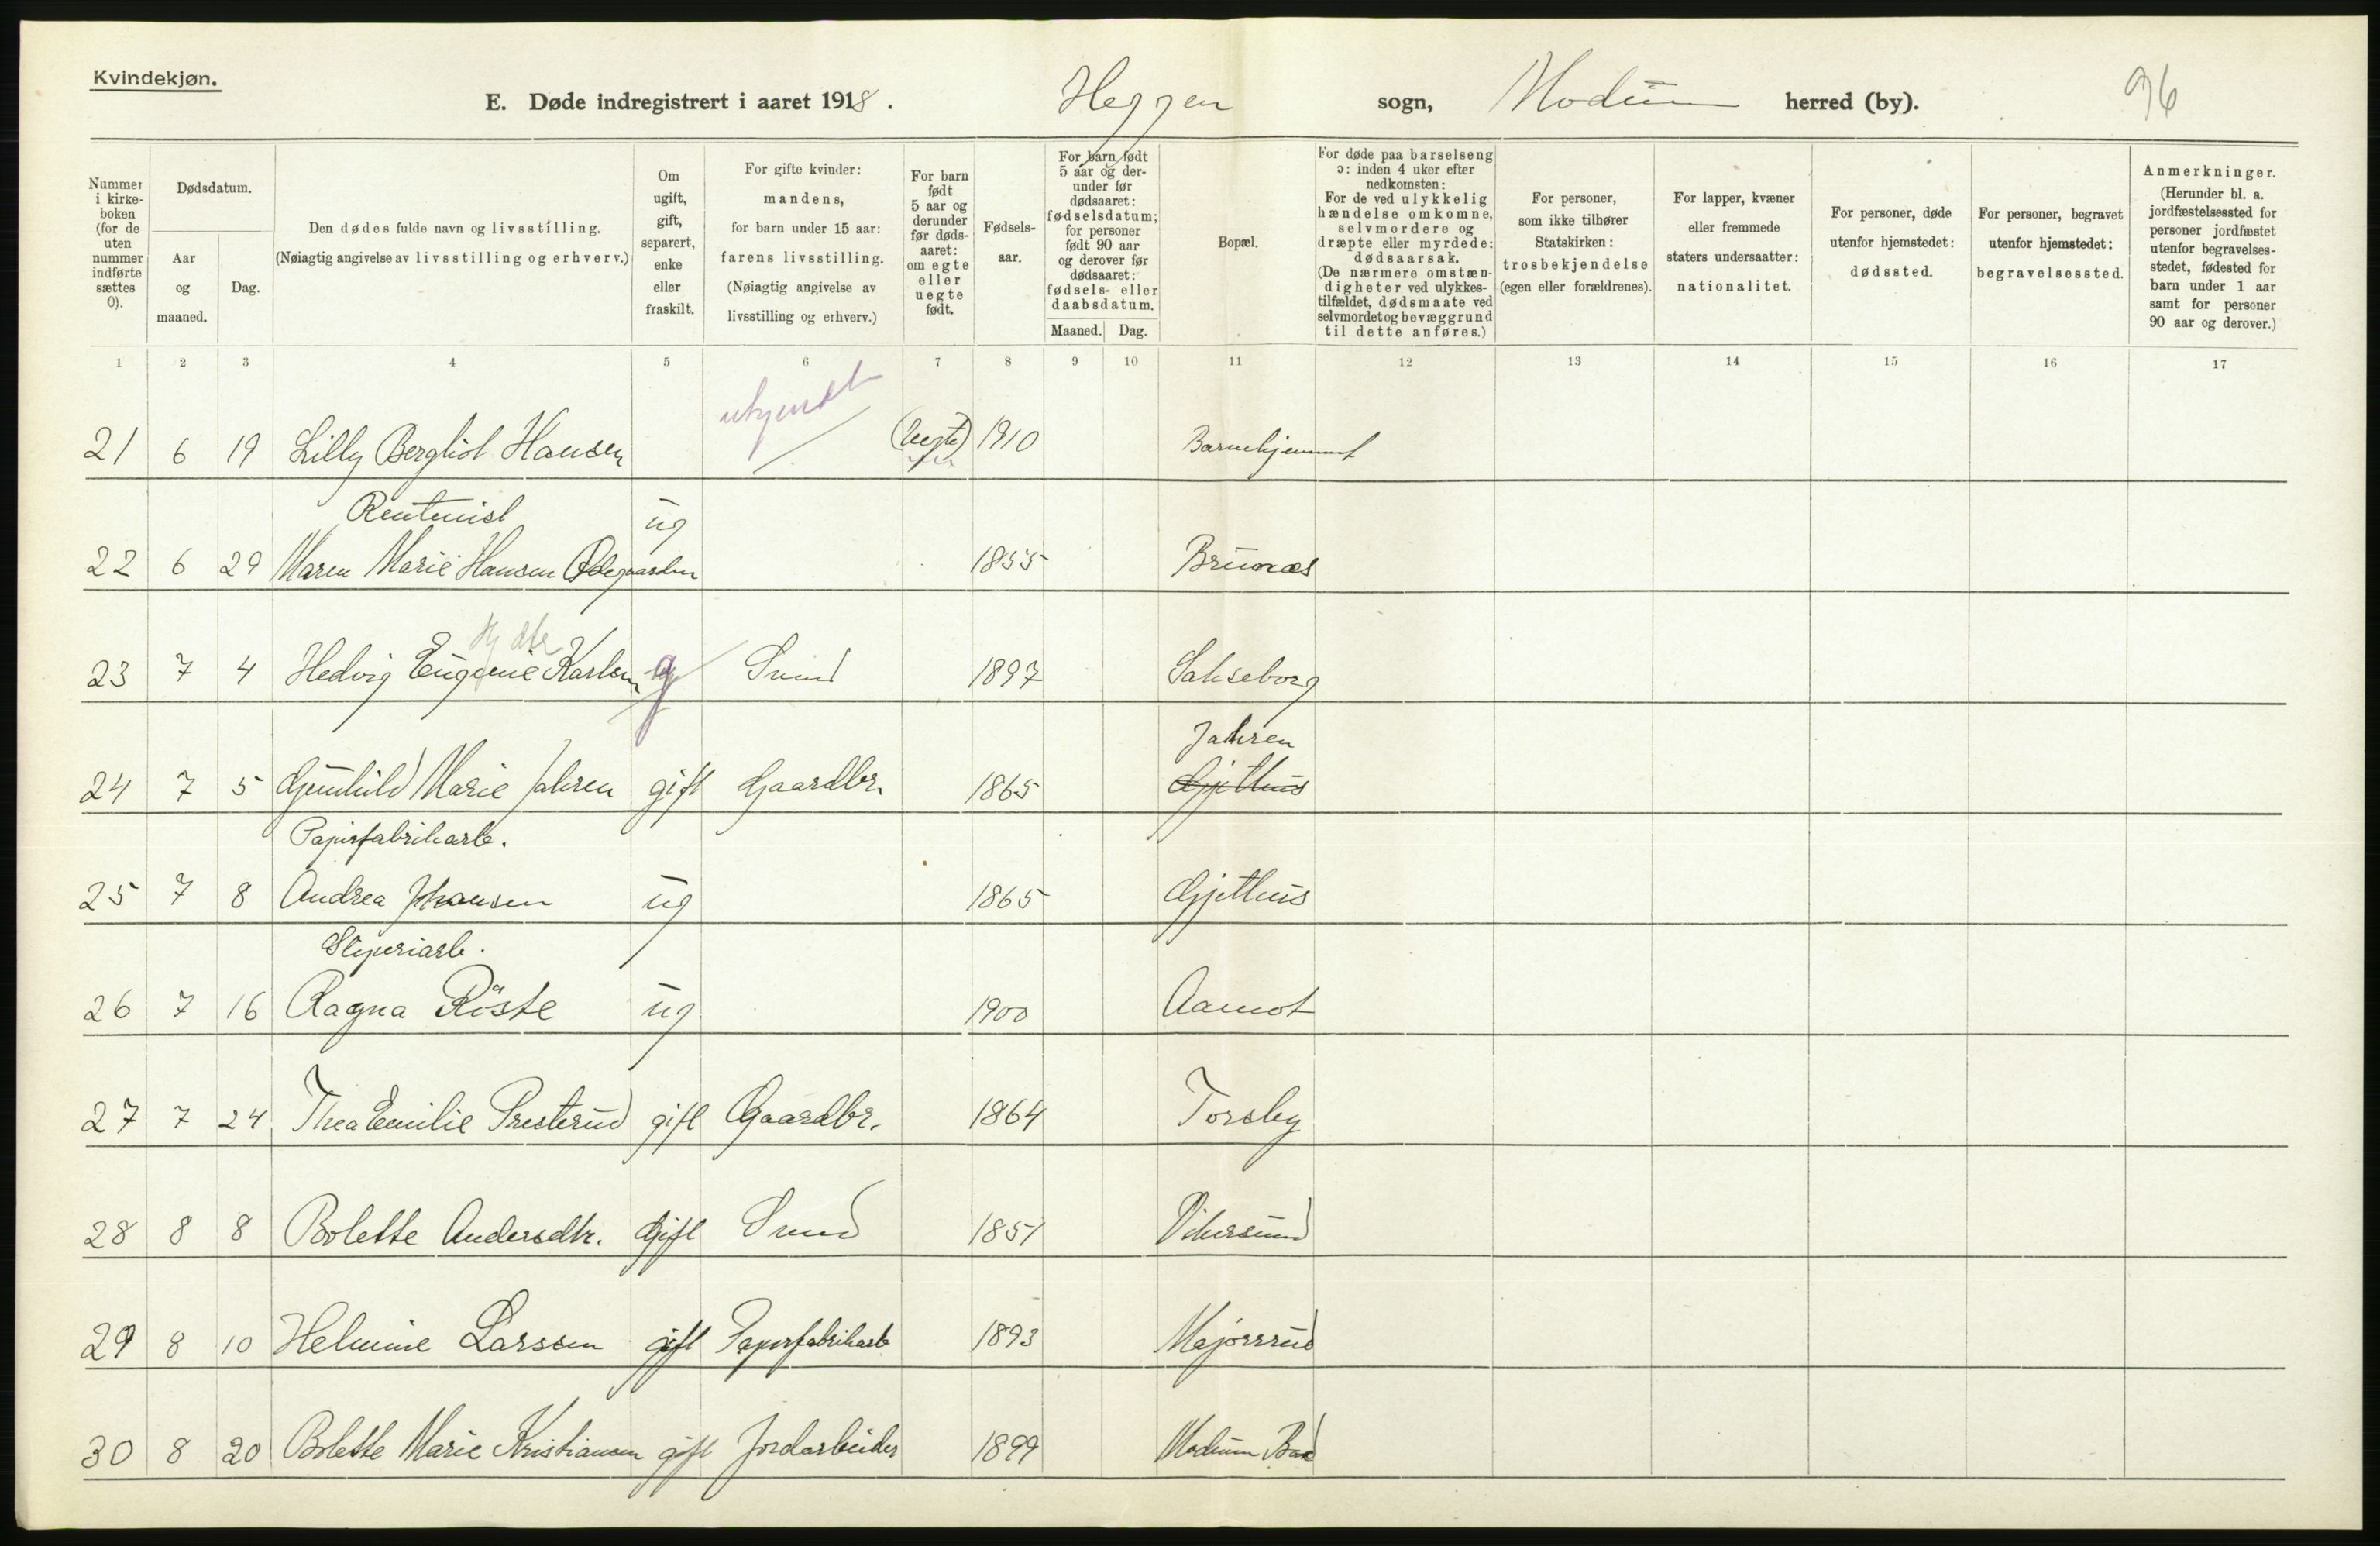 Kvindekjøn.
E. Døde indregistrert i aaret 1918. Heggen sogn, Modum herred (by). 96
Nummer i kirkeboken (for de uten nummer indførte sættes 0).
Dødsdatum.
Aar og maaned.
Dag.
Den dødes fulde navn og livsstilling.
(Nøiagtig angivelse av livsstilling og erhverv.)
Om ugift, gift, separert, enke eller fraskilt.
For gifte kvinder: mandens, for barn under 15 aar: farens livsstilling. (Nøiagtig angivelse av livsstilling og erhverv.)
For barn født 5 aar og derunder før dødsaaret: om egte eller uegte født.
Fødselsaar.
For barn født 5 aar og derunder før dødsaaret: fødselsdatum; for personer født 90 aar og derover før dødsaaret: fødsels- eller daabsdatum.
Maaned. Dag.
Bopæl.
For døde paa barselseng ɔ: inden 4 uker efter nedkomsten: For de ved ulykkelig hændelse omkomne, selvmordere og dræpte eller myrdede: dødsaarsak. (De nærmere omstændigheter ved ulykkestilfældet, dødsmaate ved selvmordet og bevæggrund til dette anføres.)
For personer, som ikke tilhører Statskirken: trosbekjendelse (egen eller forældrenes).
For lapper, kvæner eller fremmede staters undersaatter: nationalitet.
For personer, døde utenfor hjemstedet: dødssted.
For personer, begravet utenfor hjemstedet: begravelsessted.
Anmerkninger. (Herunder bl. a. jordfæstelsessted for personer jordfæstet utenfor begravelsesstedet, fødested for barn under 1 aar samt for personer 90 aar og derover.)
1 2 3 4 5 6 7 8 9 10 11 12 13 14 15 16 17
ukjendt
21 6 19 Lilly Bergliot Hansen (Uegte) 1910 Barnehjemmet
Rentenist ug
22 6 29 Maren Marie Hansen Ødegaarden 1855 Brunæs
23 7 4 Hedvig Eugenie Karlsen g Smed 1897 Sakseborg
Jahren
24 7 5 Gunhild Marie Jahren gift Gaardbr. 1865 Gjethus
Papirfabrikarb.
25 7 8 Andrea Johansen ug 1865 Gjethus
Sliperiarb.
26 7 16 Ragna Röste ug 1900 Aamot
27 7 24 Thea Emilie Presterud gift Gaardbr. 1864 Torsby
28 8 8 Bolette Andersdtr. Gift Smed 1851 Vikersund
29 8 10 Helmine Larssen gift Papirfabrikarb 1893 Majorsrud
30 8 20 Bolette Marie Kristiansen gift Jordarbeider 1899 Modum Bad